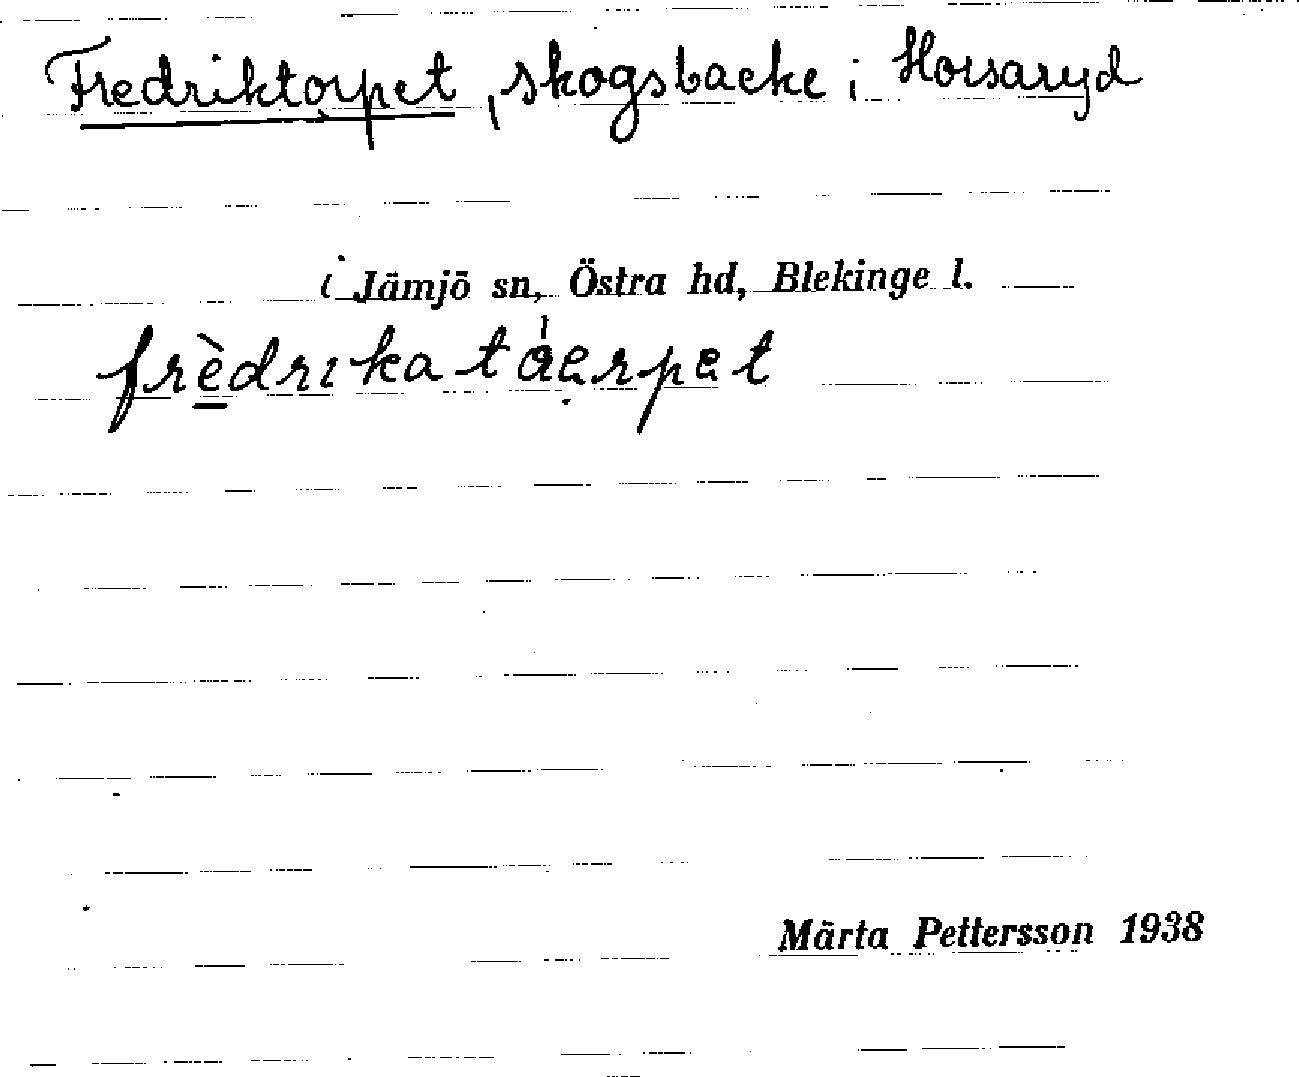 Fredriktorpet, skogsbacke i Horsaryd
i Jämjö sn, Östra hd, Blekinge l.
frèdrıkatáerpet
Märta Pettersson 1938